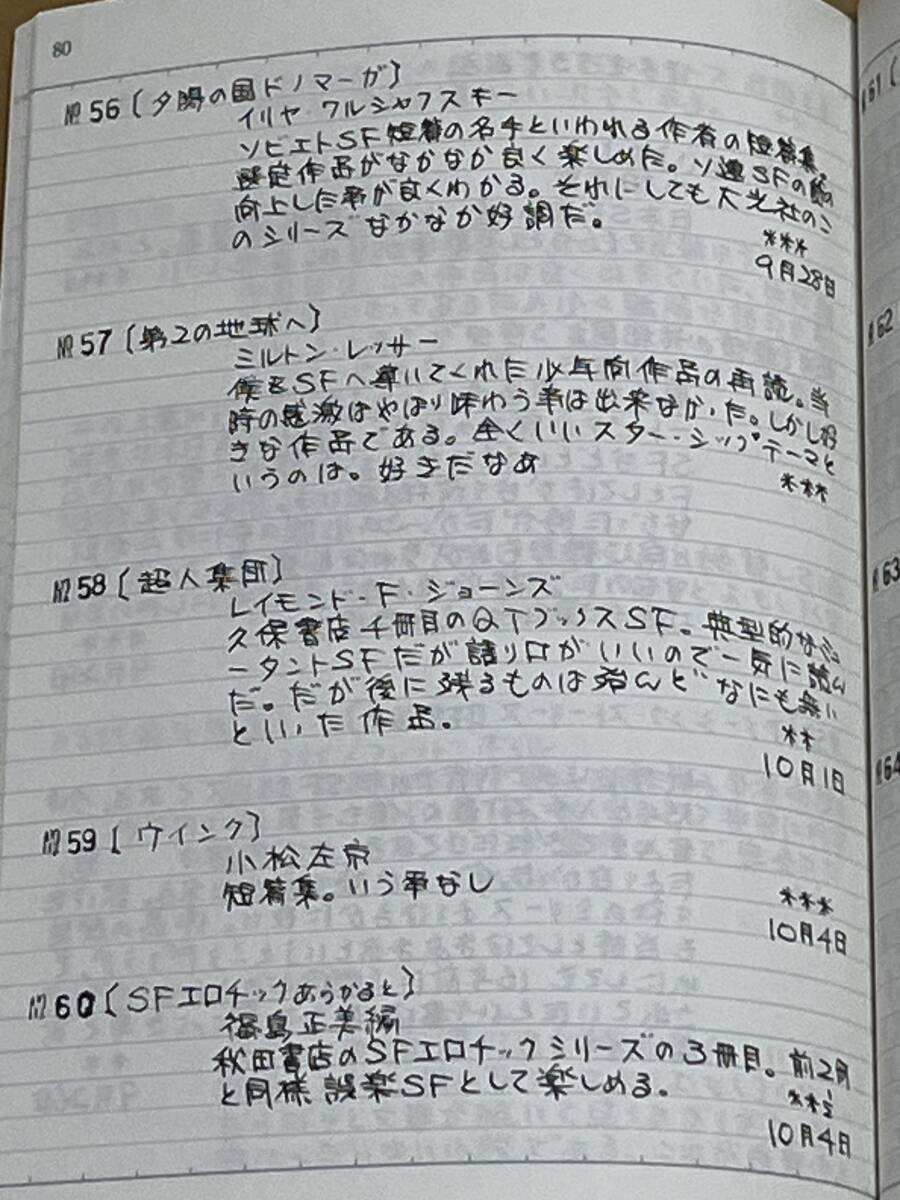 80
№56 [夕陽の国ドノマーガ]
イリヤ・ワルシャフスキー
ソビエトSF短篇の名手といわれる作者の短篇集。
選定作品がなかなか良く楽しめた。ソ連SFの
向上した事が良くわかる。それにしても大光社のこ
のシリーズなかなか好調だ。
***
9月28日
№57 [第2の地球へ]
ミルトン・レッサー
僕をSFへ導いてくれた少年向作品の再読。当
時の感激はやはり味わう事は出来なかった。しかし好
きな作品である。全くいいスター・シップ・テーマと
いうのは。好きだなあ
***
№58 [超人集団]
レイモンド・F・ジョーンズ
久保書店 千冊目のQTブックスSF。典型的なミュ
ータントSFだが語り口がいいので一気に読ん
だ。だが後に残るものは殆んどなにも無い
といった作品。
**
10月1日
№59 [ウインク]
小松左京
短篇集。いう事なし
***
10月4日
№60 [SFエロチックあらかると]
福島正美編
秋田書店のSFエロチックシリーズの3冊目。前2冊
と同様 誤楽SFとして楽しめる。
**½
10月4日
№61 [
№62
№63
№64